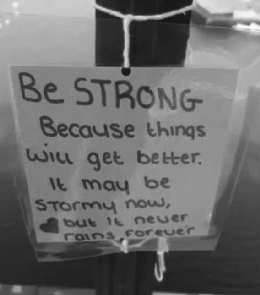 Be STRONG
Because things
will get better.
It may be
STormy now,
but it never
rains forever